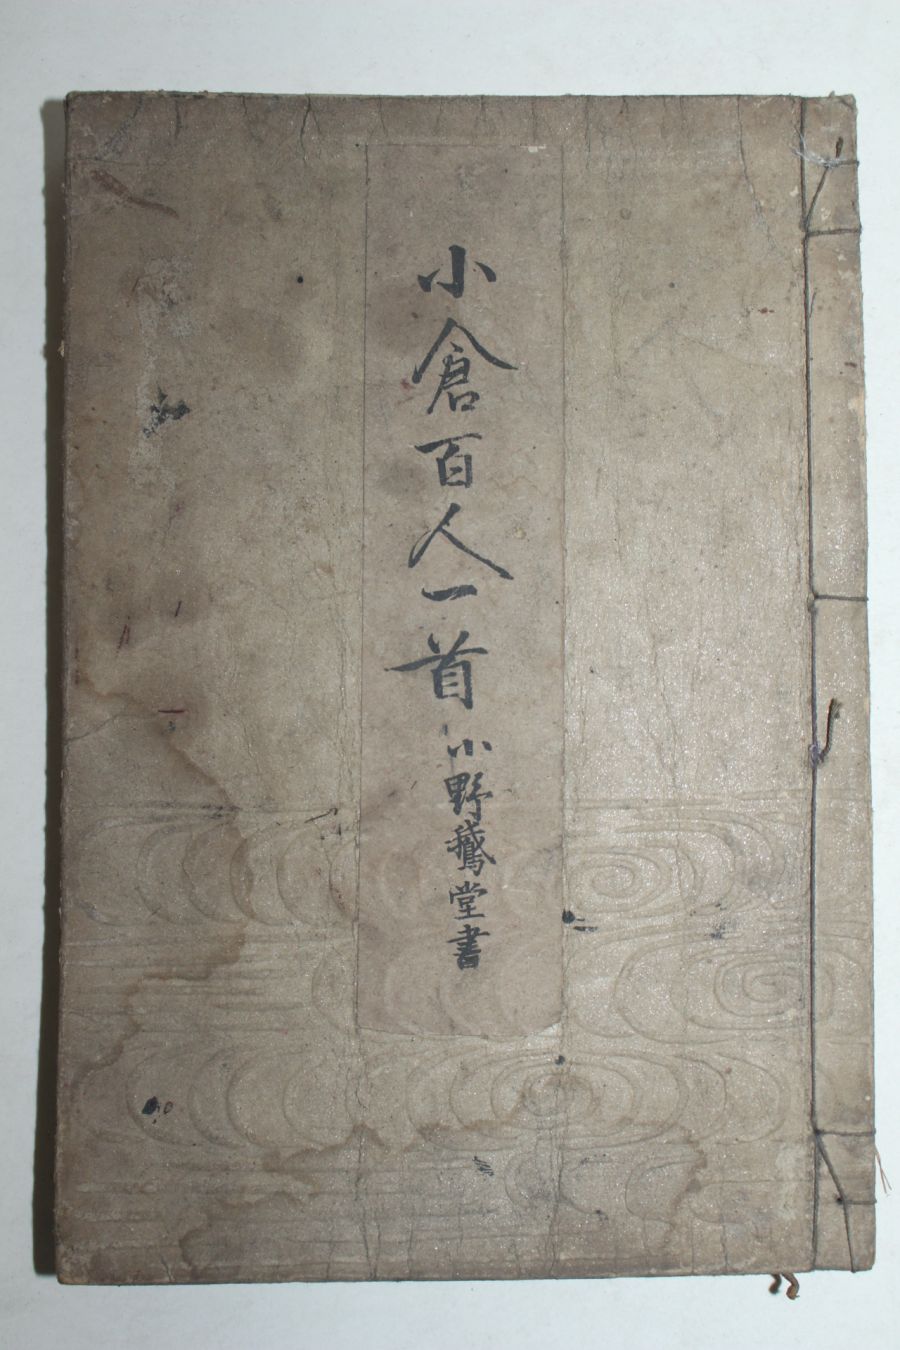 小倉百人一首 小野鵞堂書